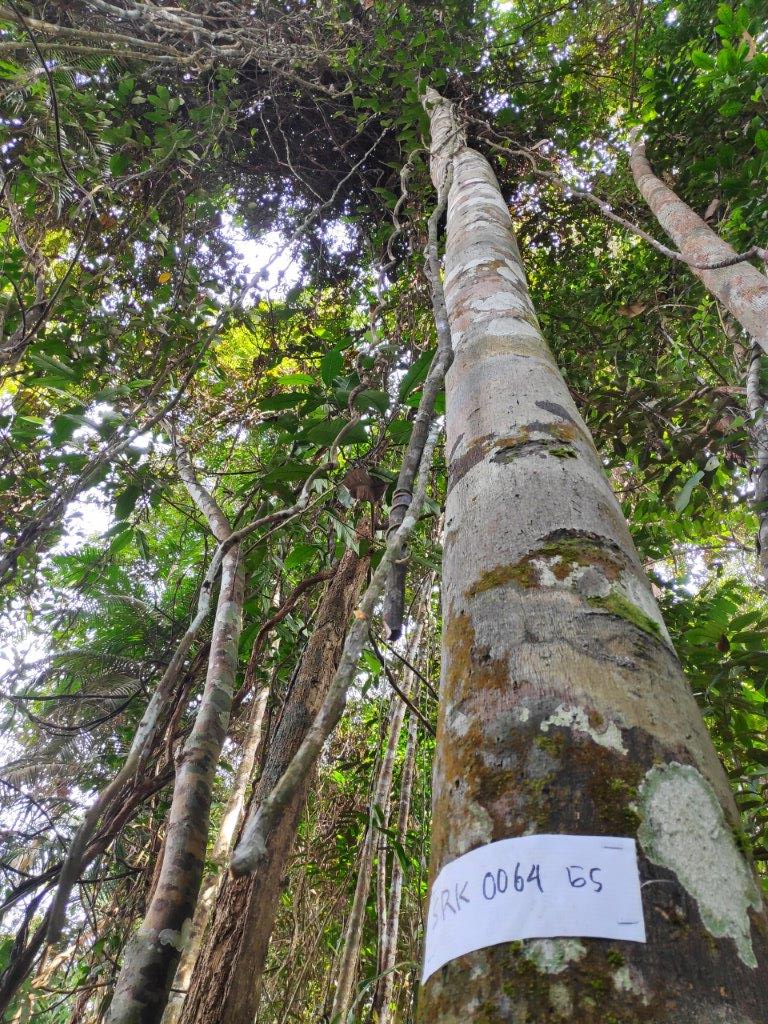 SRK 0064 65